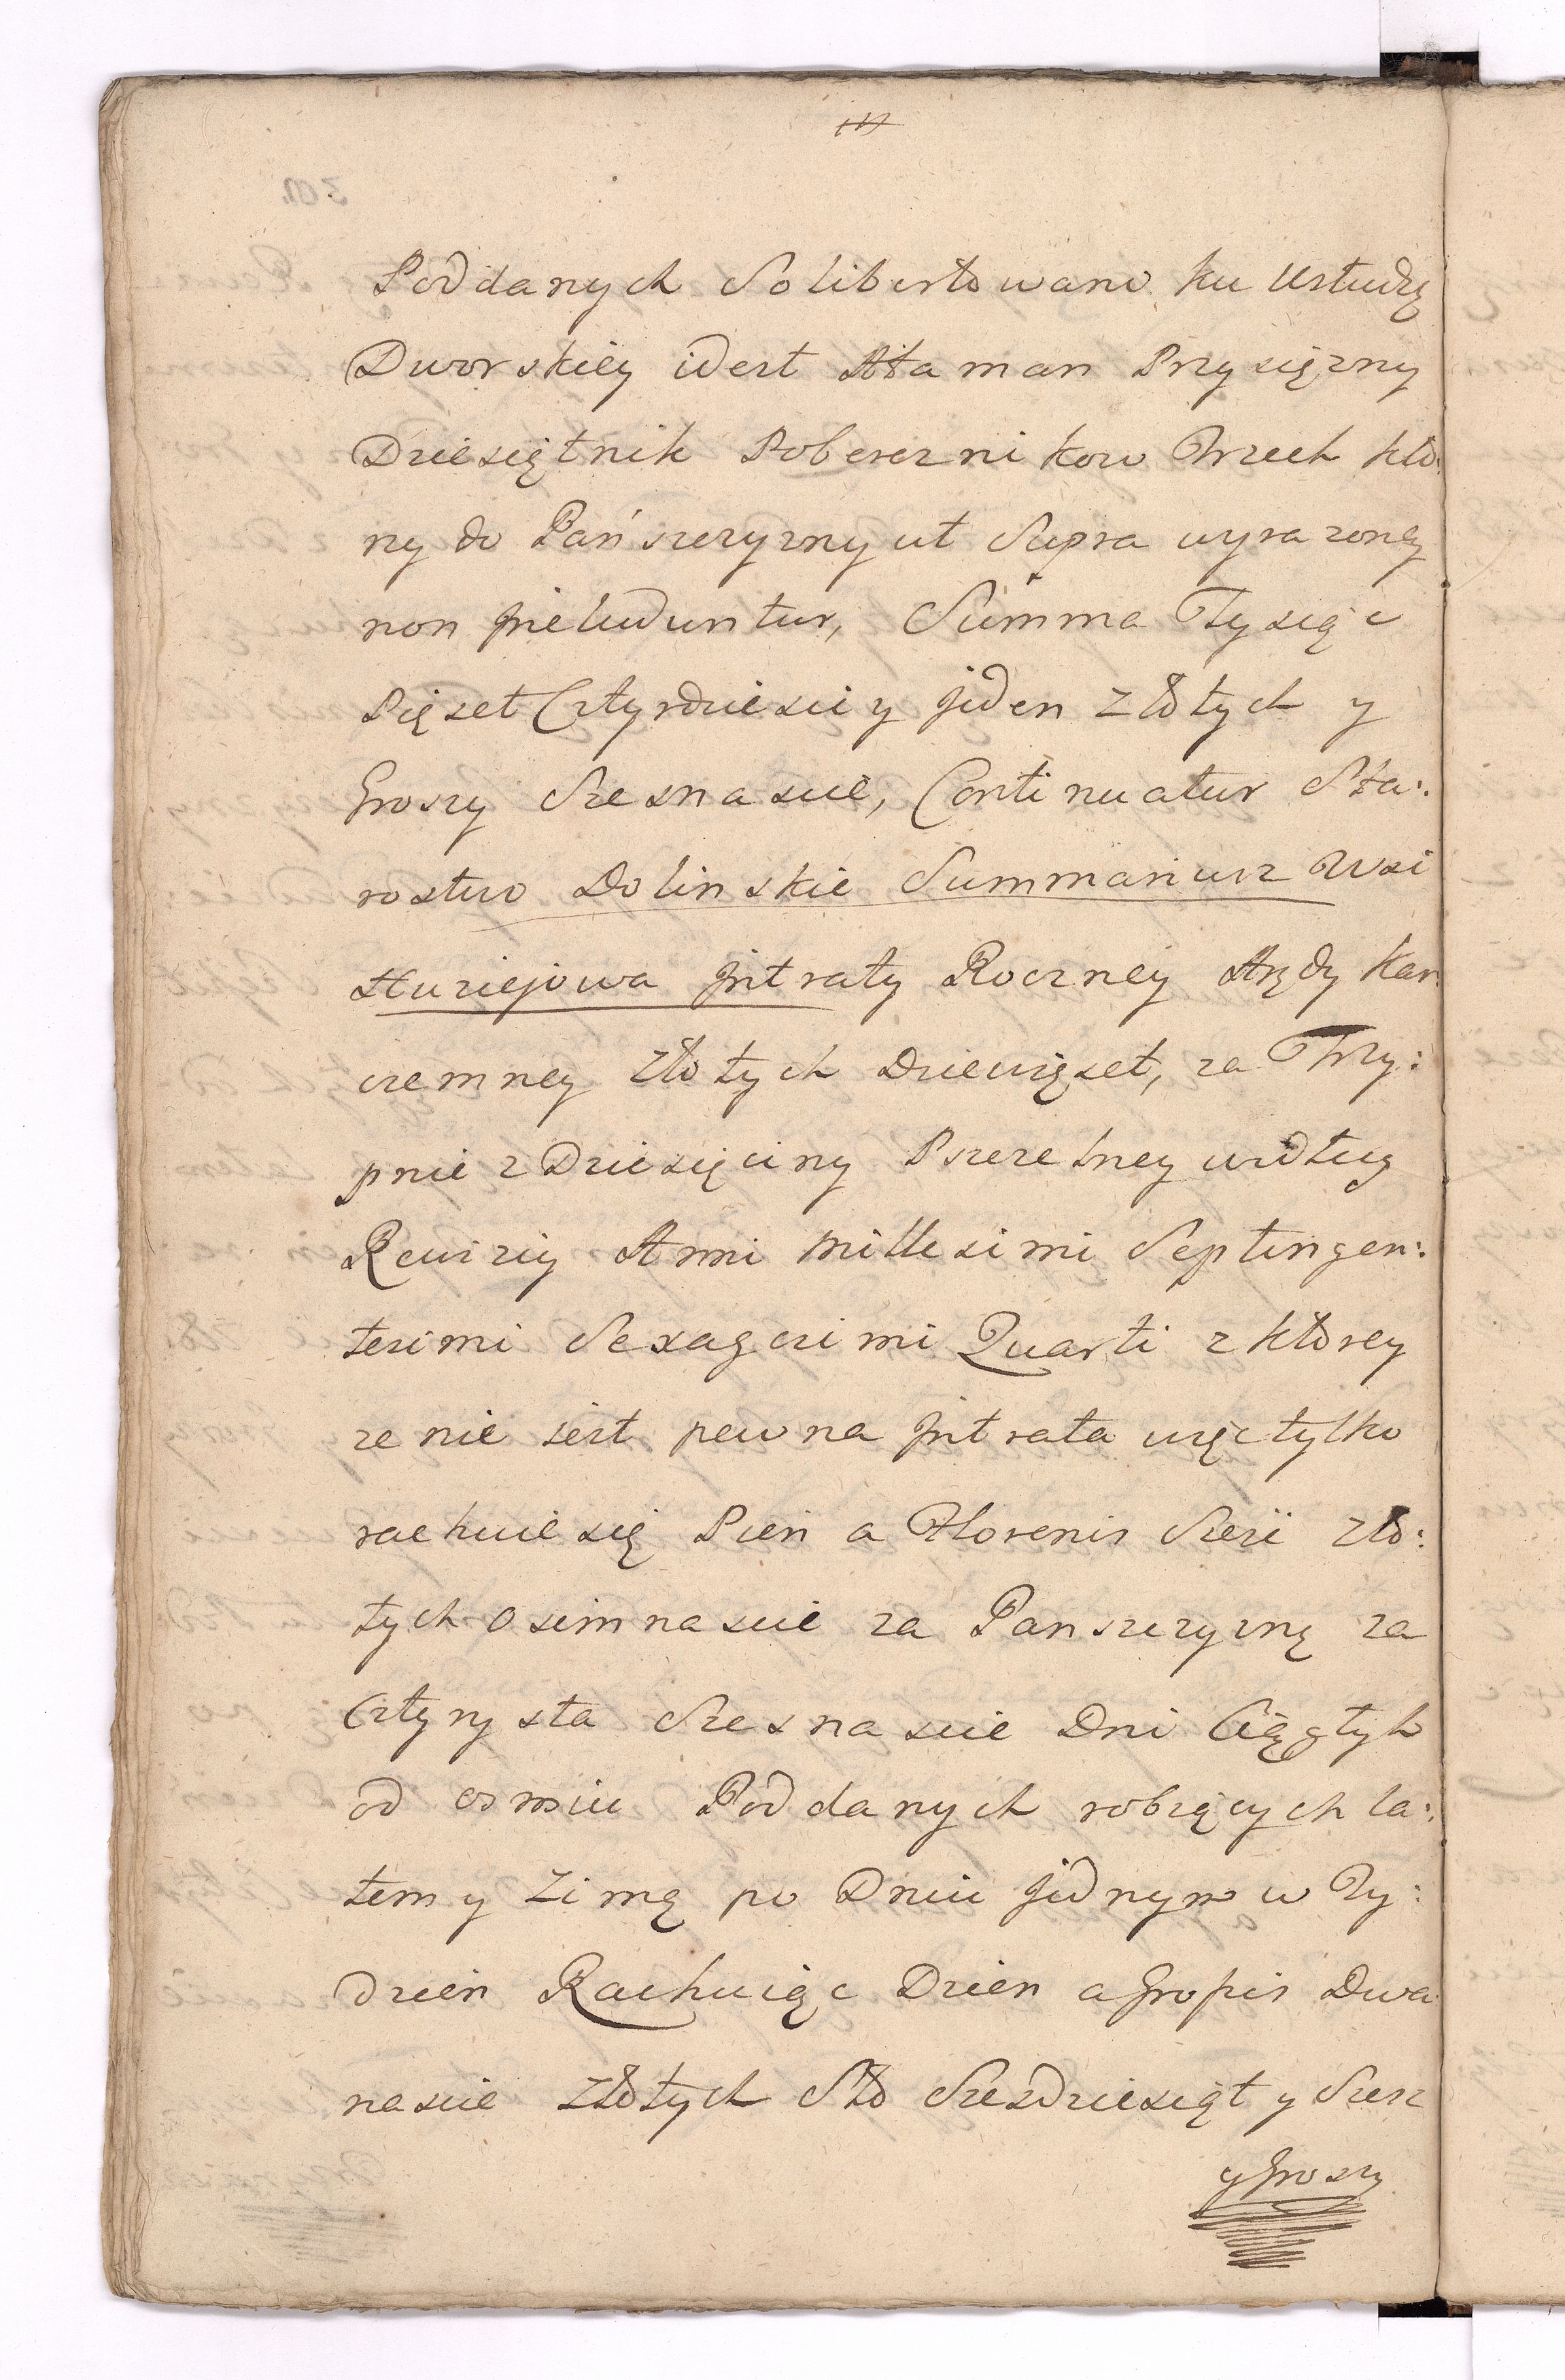 Poddanych Solibertowano ku Usłudzę
Dworskiey idest Ataman Przysięzny
Dziesiętnik Pobereznikow Trzech któ:
rzy do Pańszczyzny ut Supra wyrazoney
non includuntur, Summa Tysiąc
Pięset Cztyrdziesci y jeden złotych y
Groszy Szesnascie, Continuatur Sta:
rostwo Dolinskie Summariusz Wsi
Huziejowa Intraty Roczney Arędy Kar:
czemney złotych Dziewięset, za Trzy:
pnie z Dziesięciny Pszczelney według
Rewiziy Anni Millesimi Septingen:
tesimi Sexagesimi Quarti z którey
ze nie iest pewna Intrata więc tylko
rachuie się Pień a Florenis Sześć zło:
tych Osimnascie za Panszczyznę za
Cztyrysta Szesnascie Dni Ciągłych
od osmiu Poddanych robiących la:
tem y Zimą po Dniu jednym w Ty:
dzień Rachuiąc Dzien a Grossis Dwa
nascie złotych Sto Szesdziesiąt y Szesc
y Groszy